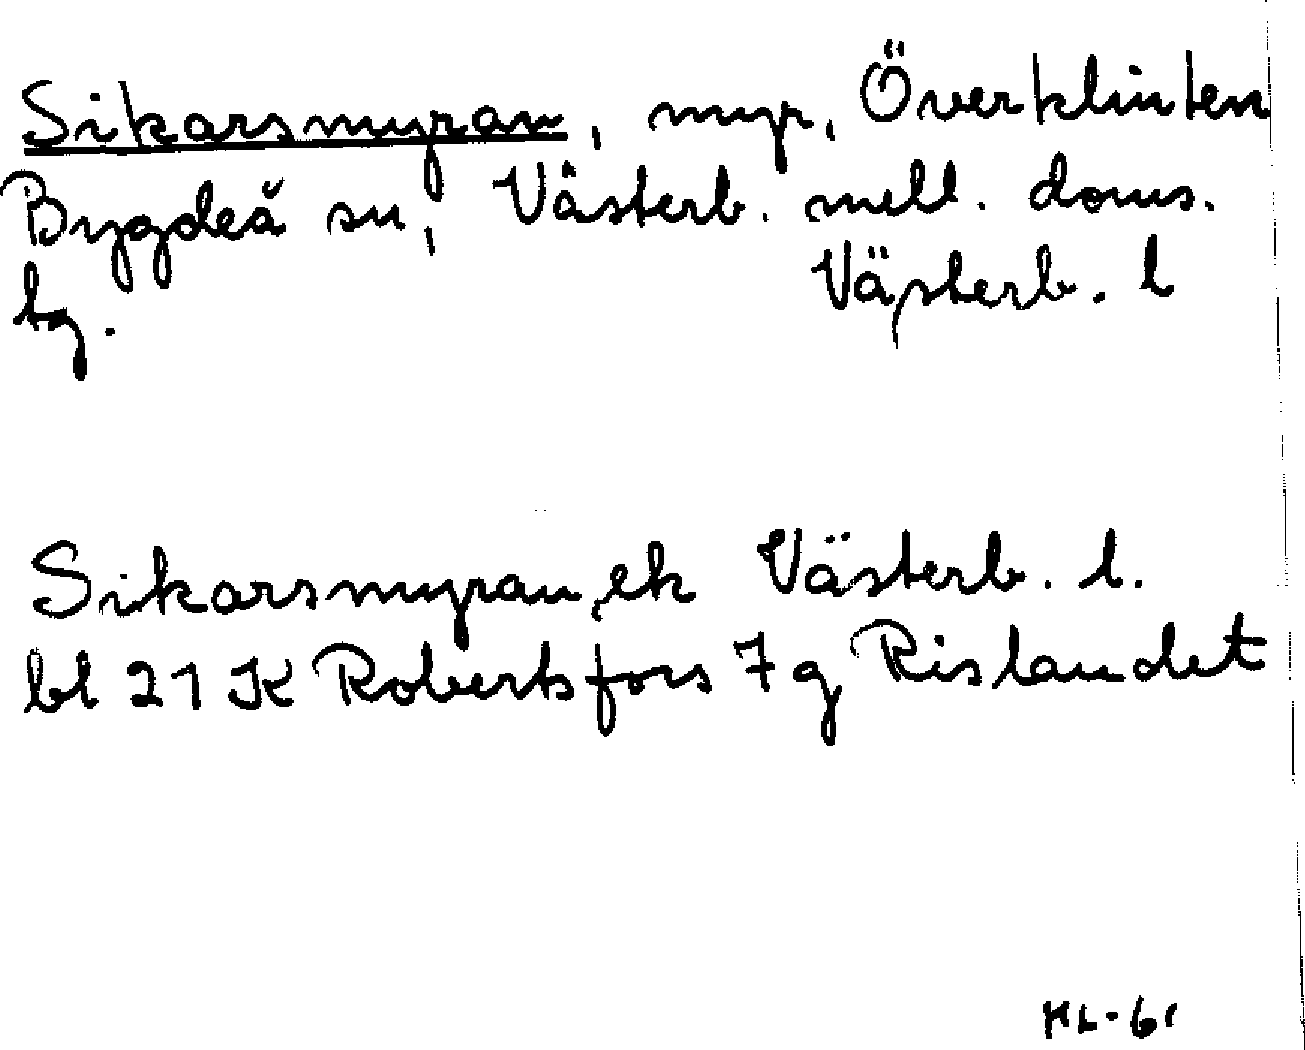 Sikarsmyran, myr, Överklinten
Bygdeå sn, Västerb. mell. doms.
tg. Västerb. l
Sikarsmyran, ek Västerb. l.
bl 21 K Robertsfors 7 g Rislandet
KL-61